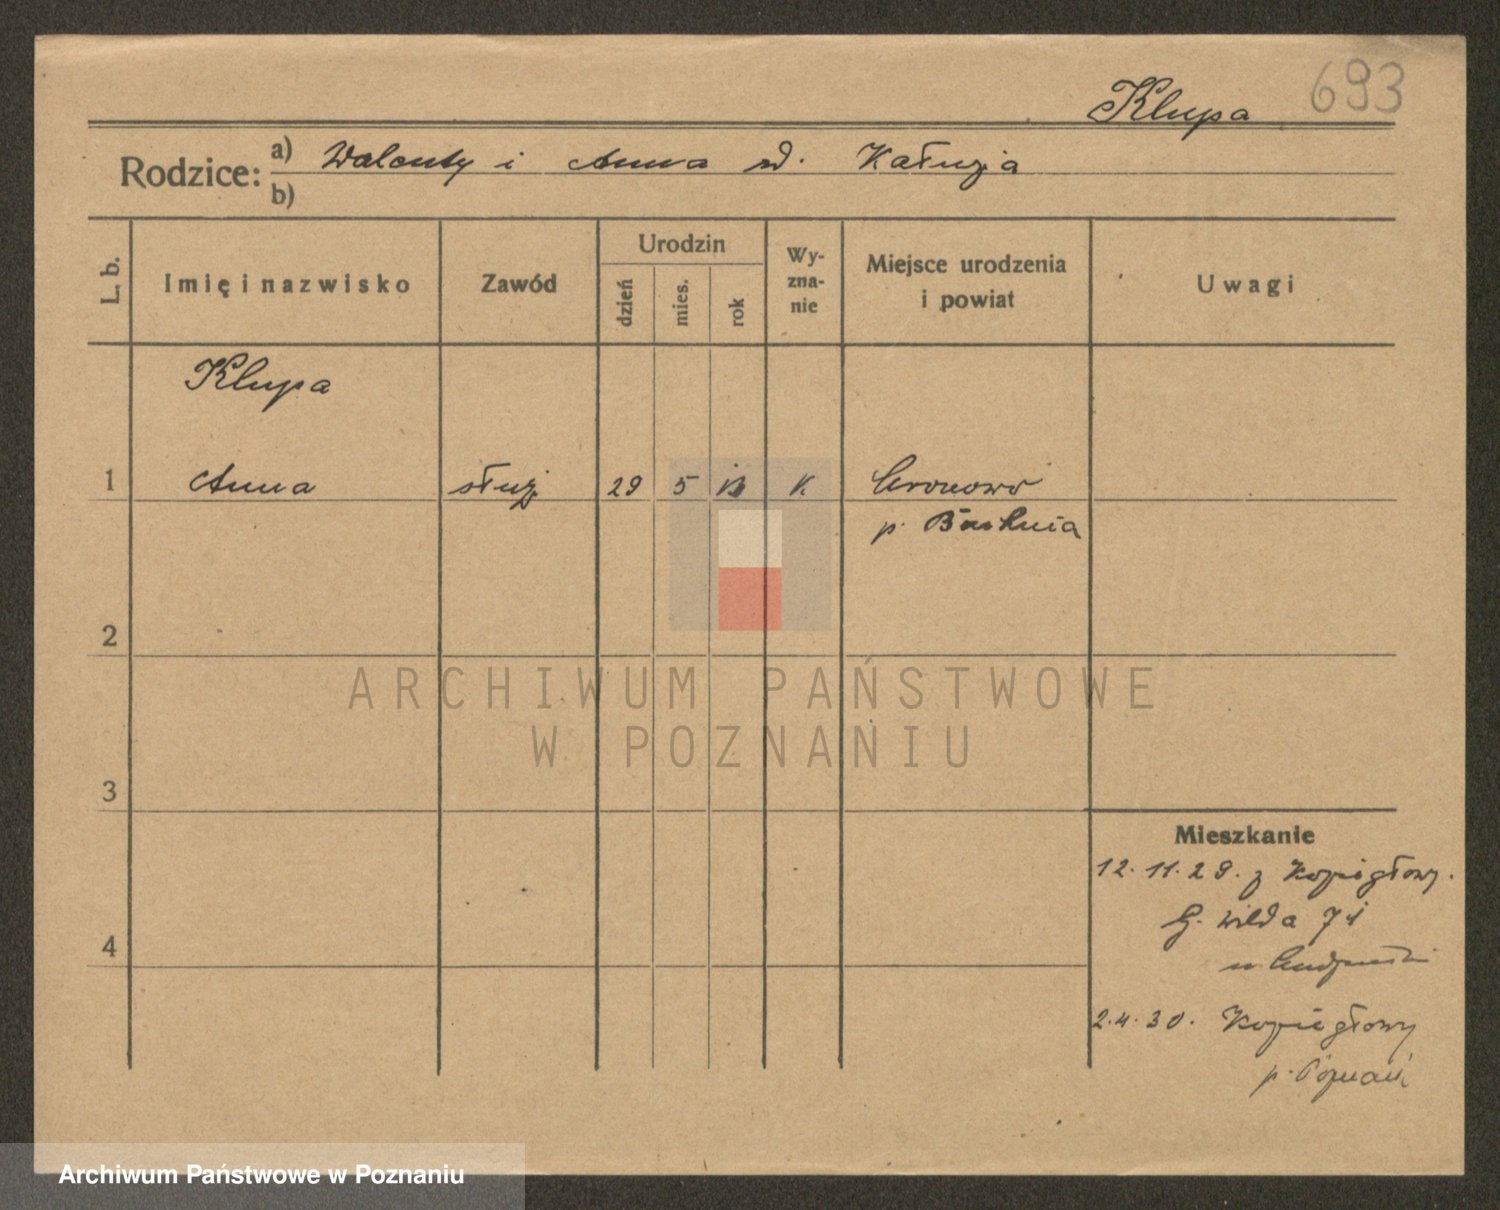 Klupa 693
Rodzice: a) Walenty i Anna d. Kałuzja
b)
L. b.
Imię i nazwisko
Zawód
Urodzin
dzień
mies.
rok
Wy-
zna-
nie
Miejsce urodzenia
i powiat
Uwagi
Klupa
1 Anna służ 29 5 K.
p. Bochnia
2
3
4
Mieszkanie
12.11.29. z Koziegłowy.
G. Wilda 71
u
2.4.30. Koziegłowy
p. Poznań
ARCHIWUM PAŃSTWOWE
W POZNANIU
Archiwum Państwowe w Poznaniu